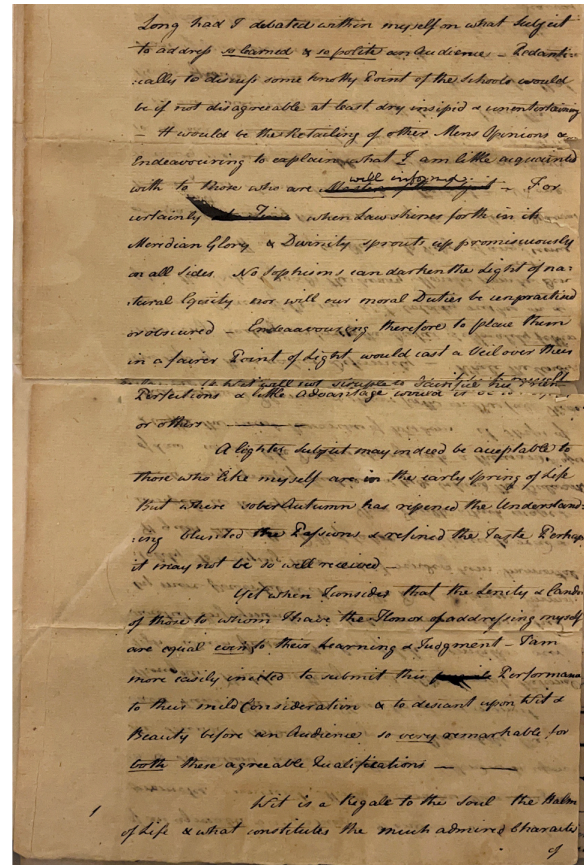 Long had I debated within myself on what Subject
to address so learned & so polite an Audience – Pedanti=
:cally to discuss some knotty Point of the Schools would
be if not disagreeable at least dry insipid & unentertaining
– It would be the Retailing of other Mens Opinions &
Endeavouring to explain what I am little acquainted
will inform'd
with to those who are – For
certainly when Law shines forth in its
Meridian Glory & Divinity sprouts up promiscuously
on all sides. No Sophisms can darken the Light of na:
:tural Equity nor will our moral Duties be unpractised
or obscured – Endeavouring therefore to place them
in a fairer Point of Light would cast a Veil over their
Perfections & little advantage would
or other
A lighter Subject may indeed be acceptable to
those who like myself are in the early spring of Life
But where sober Autumn has ripened the Understand:
:ing blunted the Passions & refined the Taste Perhaps
it may not be so well received –
Yet when I consider that the Lenity &
of those to whom I have the Honor of addressing myself
are equal even to their Learning & Judgment – I am
more easily incited to submit this Performance
to their mild Consideration & to descant upon Wit &
Beauty before an Audience so very remarkable for
both these agreeable Qualifications —
Wit is a Regale to the Soul the Balm
of Life & what constitutes the much admired Character
of